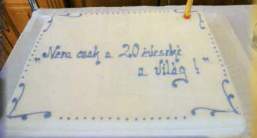 "Nem csak a 20 éveseké
a világ!"